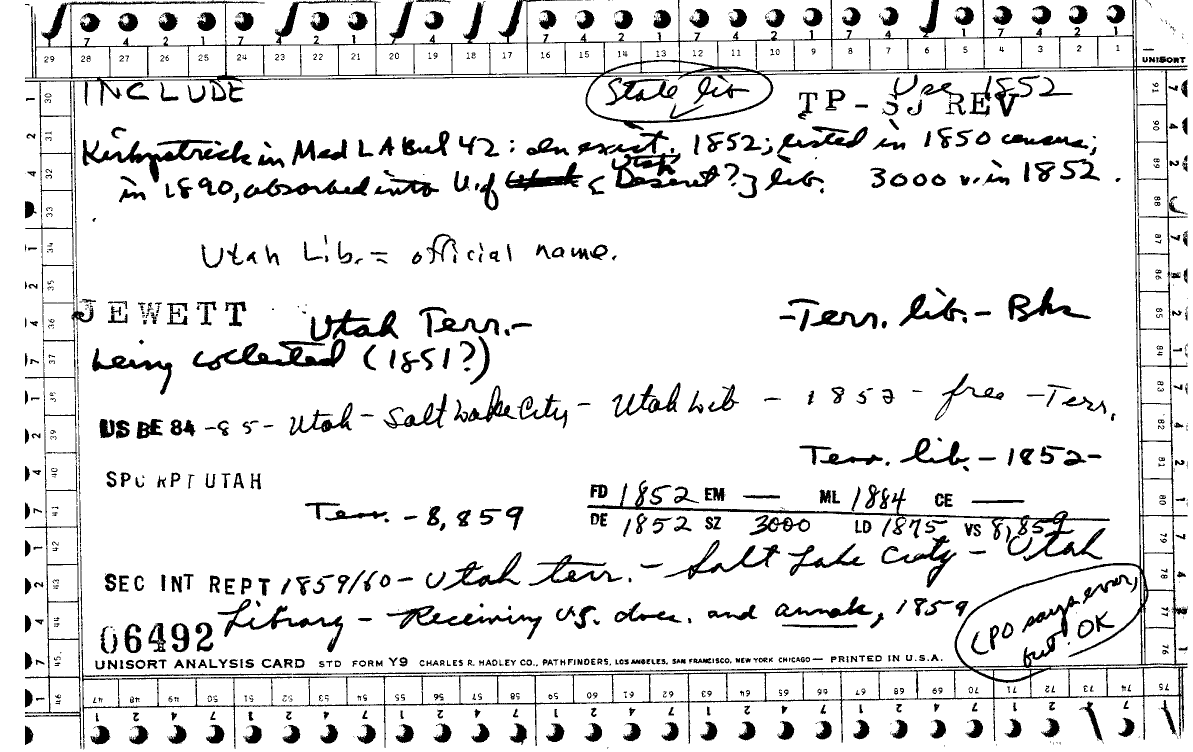 7 4 2 1 7 4 2 1 7 4 2 1 7 4 2 1 7 4 2 1 7 4 2 1
29 28 27 26 25 24 23 22 21 20 19 18 17 16 15 14 13 12 11 10 9 8 7 6 5 4 3 2 1
UNISORT
INCLUDE State lib Use 1852
TP-SJ REV
Kirkpatrick in Med LA Bul 42: in exist. 1852; listed in 1850 census;
Utah
in 1890, absorbed into U. of Utah [Deseret?] lib. 3000 v. in 1852.
Utah Lib. = official name.
JEWETT Utah Terr.- -Terr. lib. - Bks
being collected (1851?)
US BE 84-85- Utah - Salt Lake City - Utah Lib - 1852 - free - Terr.
Terr. lib. - 1852-
SPC RPT UTAH
Terr. - 8,859
FD 1852 EM — ML 1884 CE —
DE 1852 SZ 3000 LD 1875 VS 8,859
SEC INT REPT 1859/60 - Utah terr. - Salt Lake City - Utah
Library - Receiving U.S. docs. and annals, 1859
06492
(PO says error, but OK
UNISORT ANALYSIS CARD STD FORM Y9 CHARLES R. HADLEY CO., PATHFINDERS, LOS ANGELES, SAN FRANCISCO, NEW YORK CHICAGO — PRINTED IN U.S.A.
47 48 49 50 51 52 53 54 55 56 57 58 59 60 61 62 63 64 65 66 67 68 69 70 71 72 73 74 75